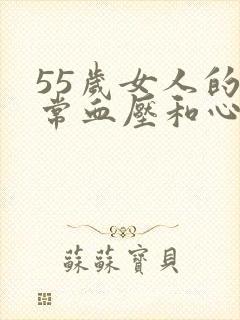 55歲女人的
常血壓和心
蘇蘇寶貝